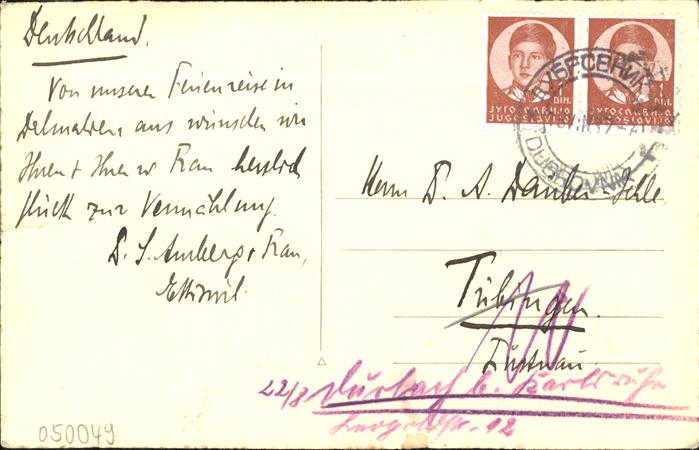 Deutschland.
Von unserer Ferienreise in
Dalmatien aus wünschen wir
Ihnen & Ihrer w Frau herzlich
Glück zur Vermählung.
D. S. Amberg & Frau,
Herrn D. A. Dauber
Tübingen.
Lustnau.
22/8 Durlach b. Karlsruhe
Leopoldstr. 12
050049
1 DIN.
ЈУГОСЛАВИЈА
JUGOSLAVIJA
1 DIN.
ЈУГОСЛАВИЈА
JUGOSLAVIJA
ДУБРОВНИК
DUBROVNIK